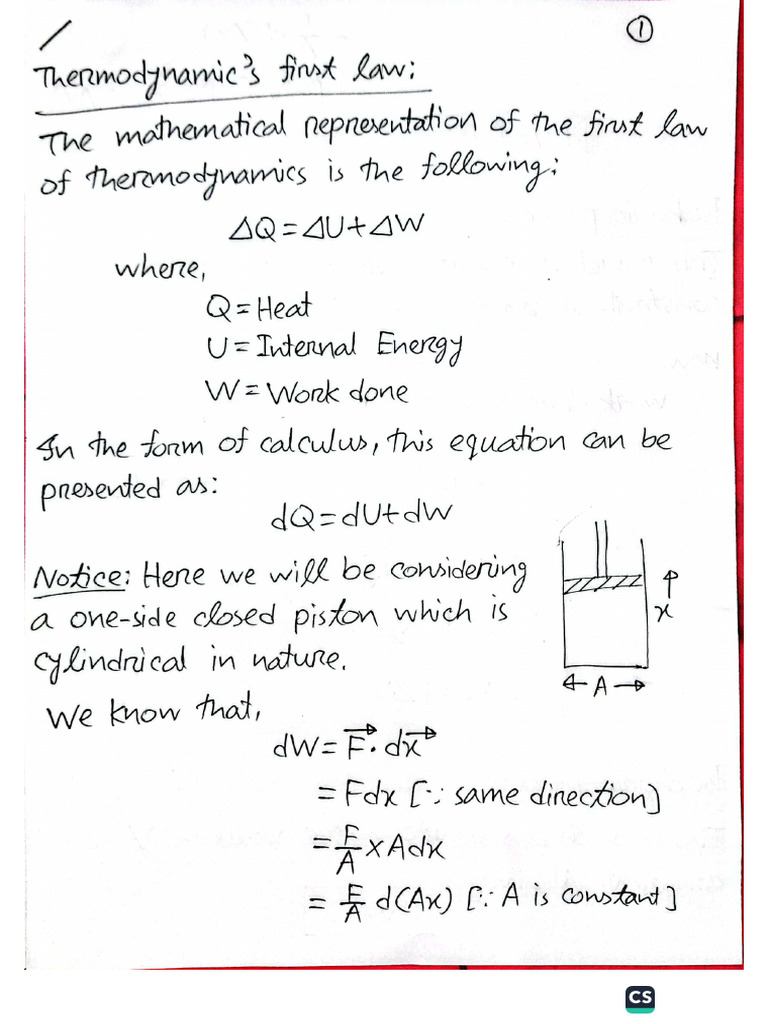 ①
Thermodynamic's first law:
The mathematical representation of the first law
of thermodynamics is the following:
ΔQ = ΔU + ΔW
where,
Q = Heat
U = Internal Energy
W = Work done
In the form of calculus, this equation can be
presented as:
dQ = dU + dW
Notice: Here we will be considering
a one-side closed piston which is
cylindrical in nature.
x
← A →
We know that,
dW = F⃗ · dx⃗
= Fdx [∵ same direction]
= F/A × Adx
= F/A d(Ax) [∵ A is constant]
CS